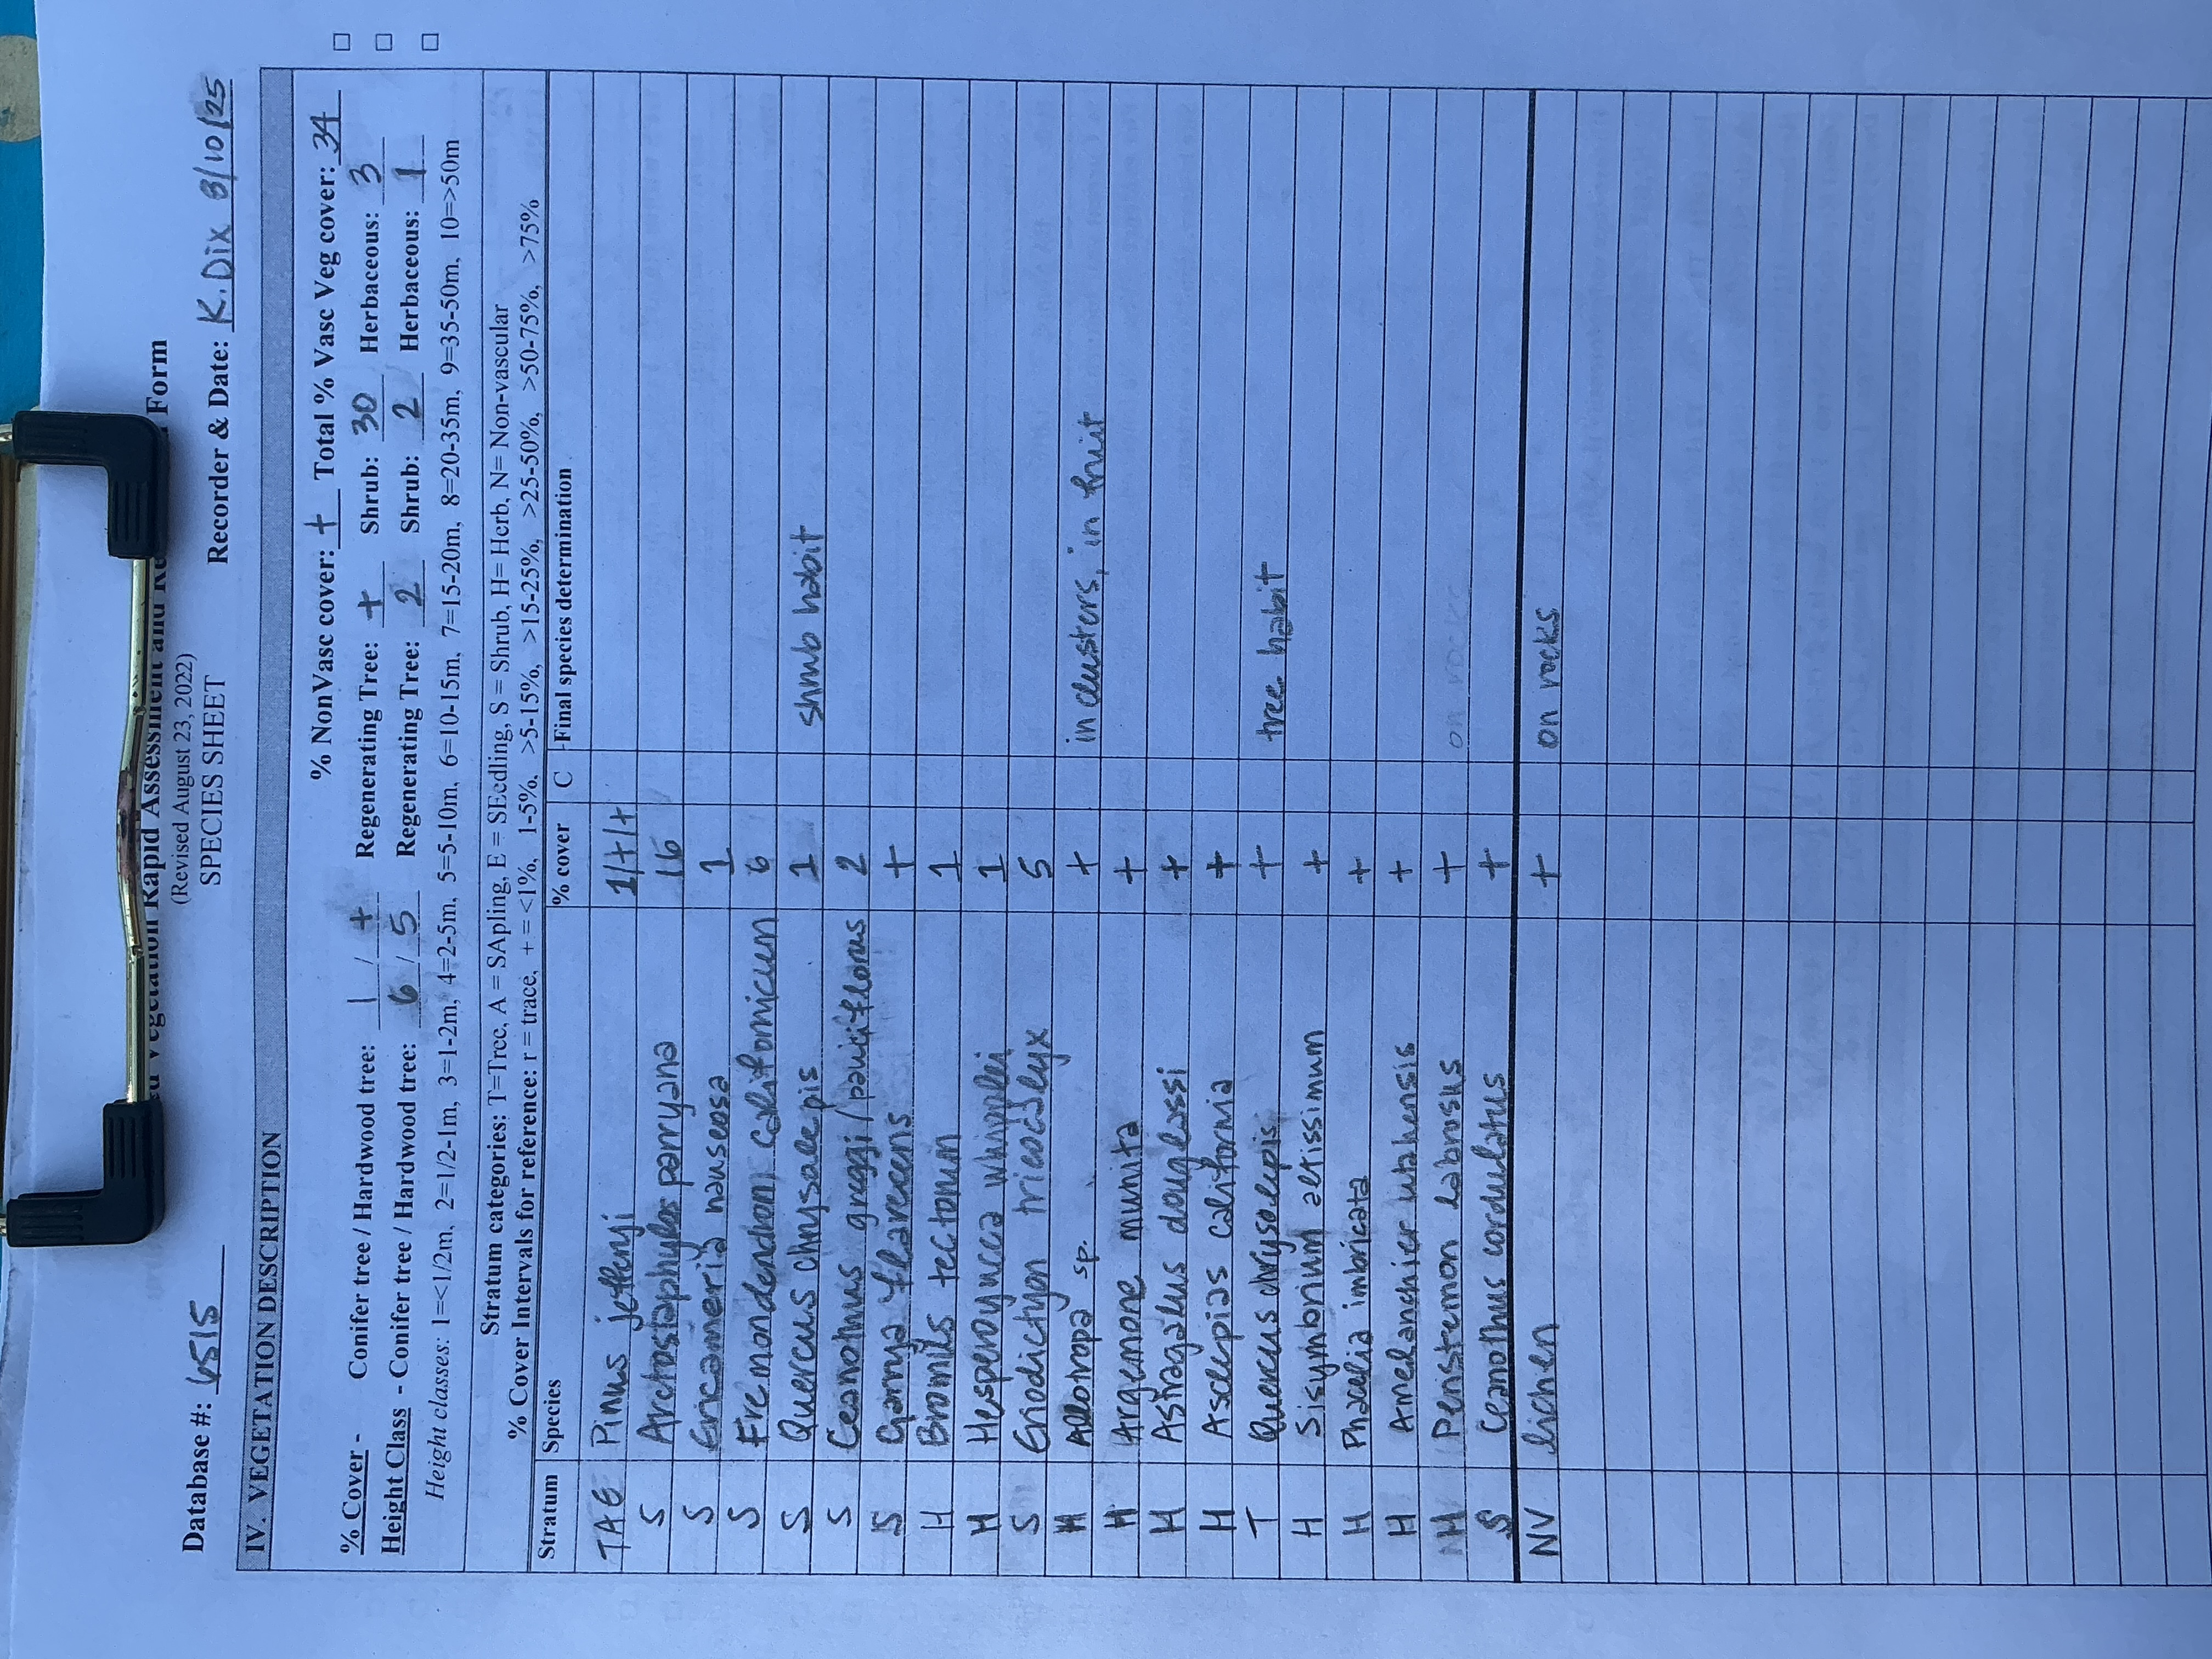 Vegetation Rapid Assessment and Form
(Revised August 23, 2022)
SPECIES SHEET
Database #: 6515 Recorder & Date: K. Dix 8/10/25
IV. VEGETATION DESCRIPTION
% NonVasc cover: + Total % Vasc Veg cover: 34
% Cover - Conifer tree / Hardwood tree: 1 / + Regenerating Tree: + Shrub: 30 Herbaceous: 3
Height Class - Conifer tree / Hardwood tree: 6 / 5 Regenerating Tree: 2 Shrub: 2 Herbaceous: 1
Height classes: 1=<1/2m, 2=1/2-1m, 3=1-2m, 4=2-5m, 5=5-10m, 6=10-15m, 7=15-20m, 8=20-35m, 9=35-50m, 10=>50m
Stratum categories: T=Tree, A = SApling, E = SEedling, S = Shrub, H= Herb, N= Non-vascular
% Cover Intervals for reference: r = trace, + = <1%, 1-5%, >5-15%, >15-25%, >25-50%, >50-75%, >75%
Stratum Species % cover C Final species determination
TAE Pinus jeffreyi 1/+/+
S Arctostaphylos parryana 16
S Ericameria nauseosa 1
S Fremondendron californicum 6
S Quercus chrysolepis 1 shrub habit
S Ceanothus greggi / pauciflorus 2
S Garrya flavescens +
H Bromus tectorum 1
H Hesperoyucca whipplei 1
S Eriodictyon tricocalyx 5
H Allotropa sp. + in clusters, in fruit
H Argemone munita +
H Astragalus douglassi +
H Asclepias california +
T Quercus chrysolepis + tree habit
H Sisymbrium altissimum +
H Phacelia imbricata +
H Amelanchier utahensis +
H Penstemon labrosus + on rocks
S Ceanothus cordulatus +
NV lichen + on rocks